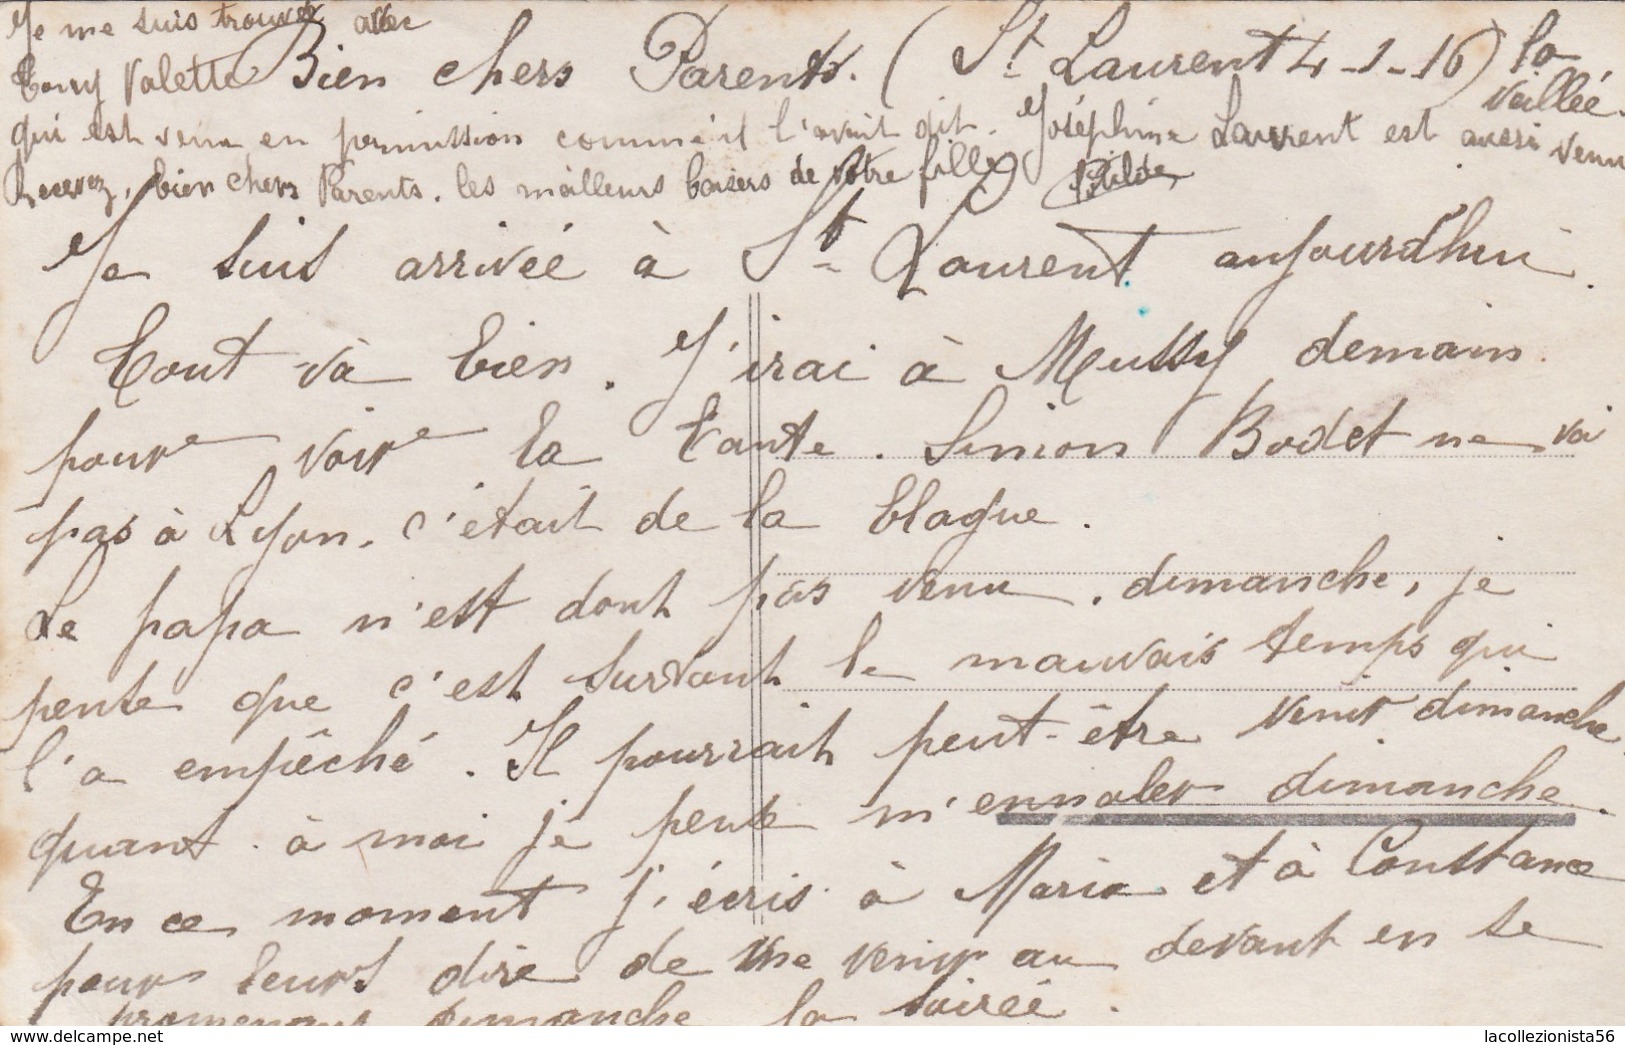 Bien chers Parents. (St Laurent 4-1-16) la
veillée.
Je suis arrivée à St Laurent aujourd'hui.
Tout và bien. J'irai à Mussy demain
pour voir la tante. Simon Bodet ne va
pas à Lyon, c'était de la blague.
Le papa n'est dont pas venu dimanche, je
pense que c'est surtout le mauvais temps qui
l'a empêché. Il pourrait peut-être venir dimanche
quant à moi je pense m'ennaler dimanche.
En ce moment j'écris à Maria et à Constance
pour leurs dire de me venir au devant en se
promenant dimanche la soirée.
Je me suis trouvée avec
Tony Valette
qui est venu en permission comme il l'avait dit. Joséphine Laurent est aussi venu
Recevez, bien chers Parents. les meilleurs baisers de votre fille
lacollezionista56